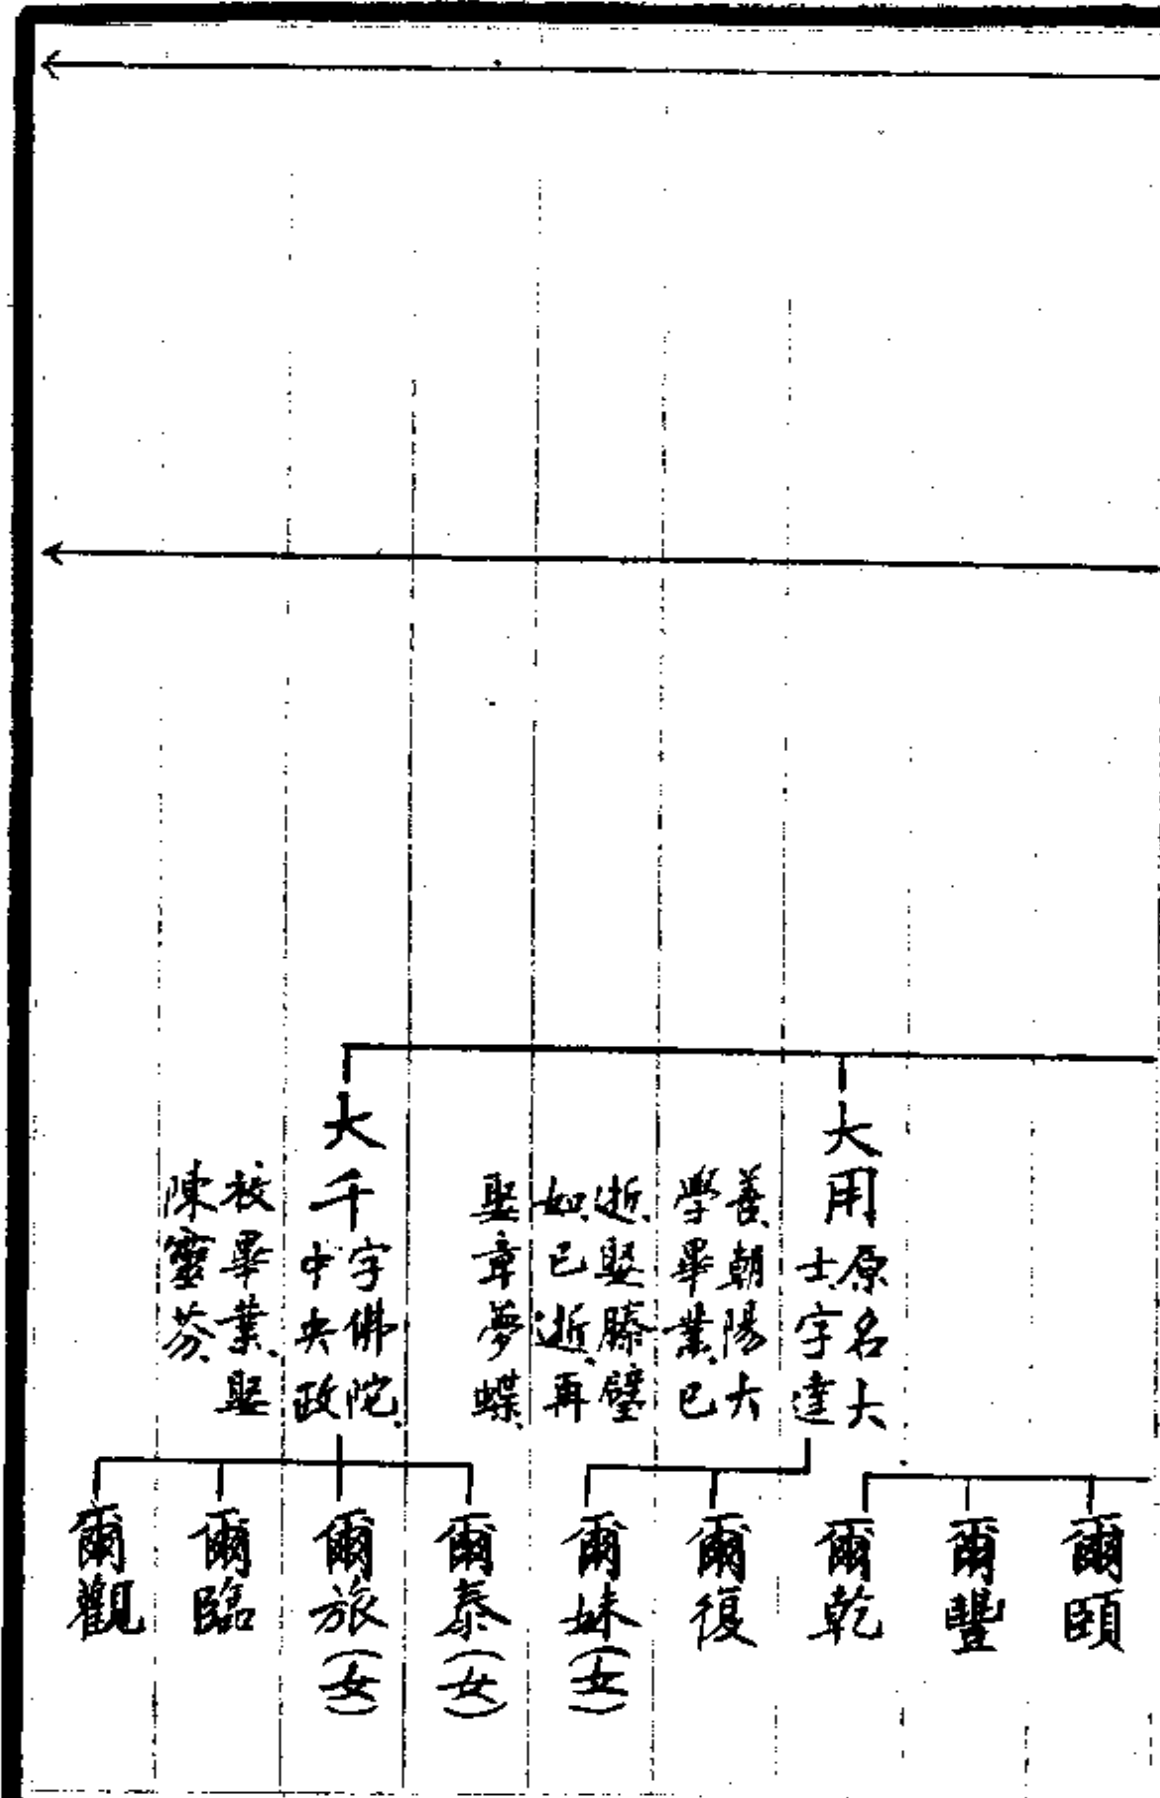 大用
原名大
士、字達
善、朝陽大
學畢業、已
逝、娶滕璧
如、已逝、再
娶章夢蝶、
大千
字佛陀、
中央政
校畢業、娶
陳靈芬、
爾頤
爾豐
爾乾
爾復
爾妹(女)
爾泰(女)
爾旅(女)
爾臨
爾觀